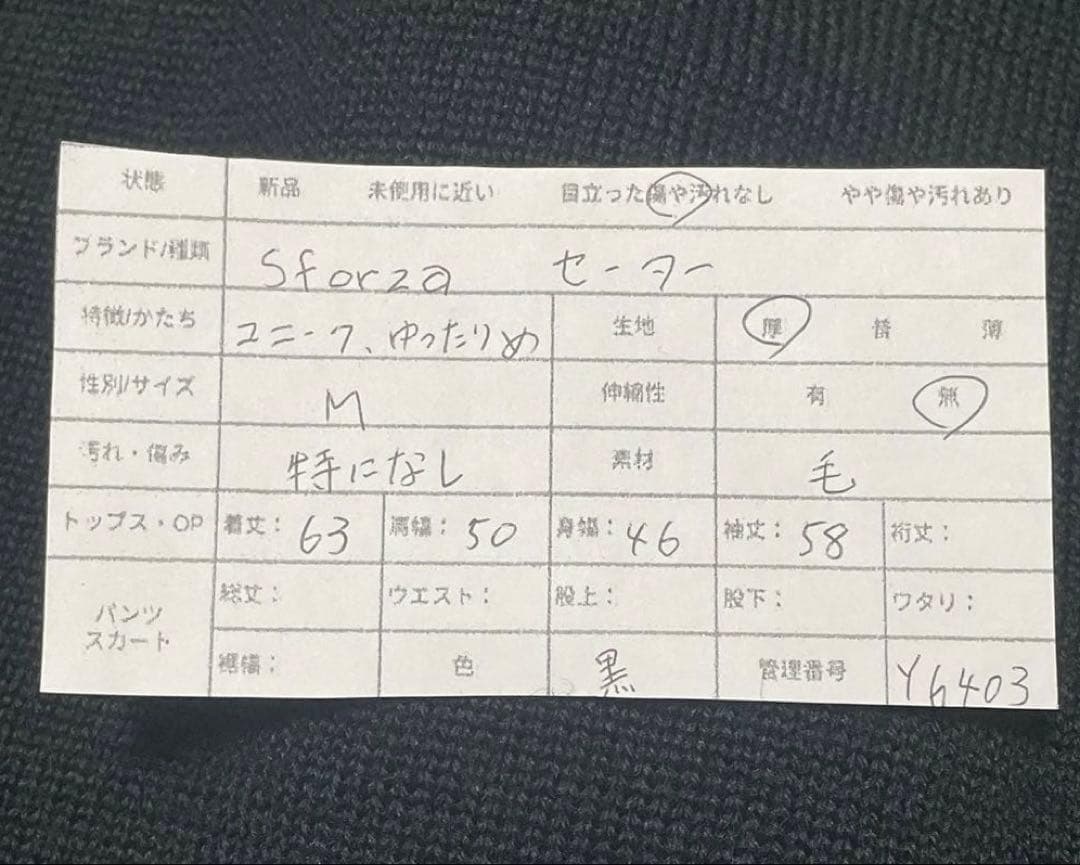 状態 新品 未使用に近い 目立った傷や汚れなし やや傷や汚れあり
ブランド/種類 Sforza セーター
特徴/かたち ユニーク、ゆったりめ 生地 厚 普 薄
性別/サイズ M 伸縮性 有 無
汚れ・傷み 特になし 素材 毛
トップス・OP 着丈: 63 肩幅: 50 身幅: 46 袖丈: 58 裄丈:
パンツ 総丈: ウエスト: 股上: 股下: ワタリ:
スカート
裾幅: 色 黒 管理番号 Y6403